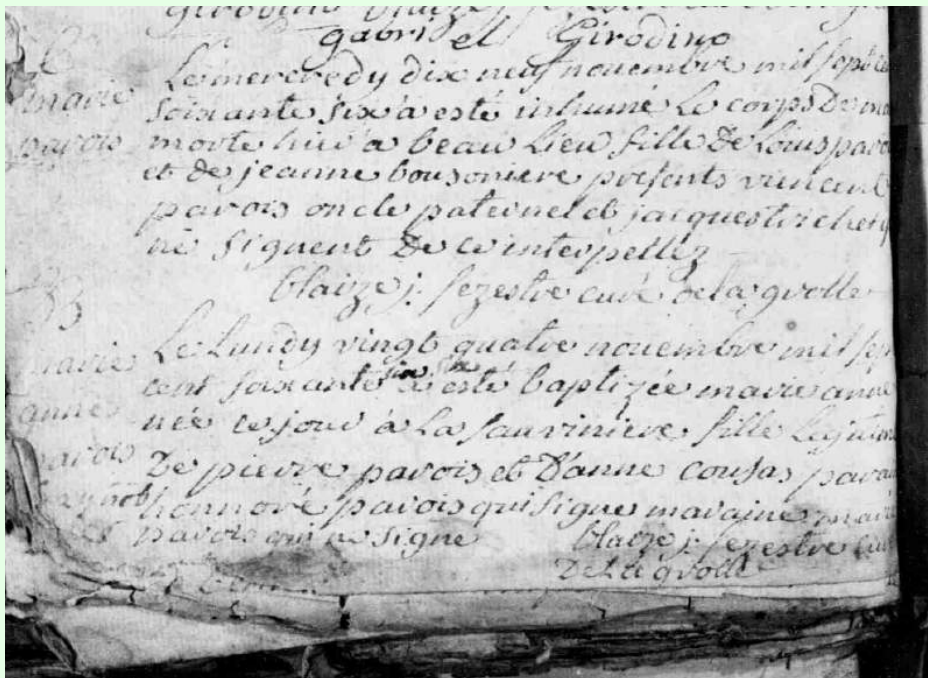 gabriel Girodino
marie
parois
Le mercredy dix neuf novembre mil sept cen
soixante six a esté inhumé Le corps De ma
morte hier a beau Lieu fille De Louis paro
et de jeanne bousoniere presents vincent
parois oncle paternel et jacques
ne signent De ce interpellez
blaize j. sezestre curé de la grolle
B
marie
anne
parois
Le Lundy vingt quatre novembre mil sep
cent soixante six a esté baptizée marie anne
née ce jour à La sauviniere fille Legitime
De pierre parois et D'anne cousas parain
honnoré parois qui signe maraine marie
parois qui a signé blaize j. sezestre curé
De La grolle